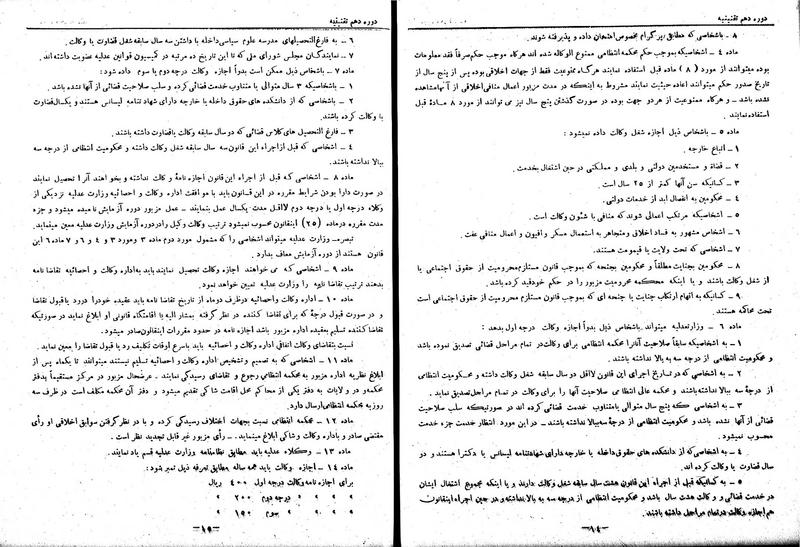 دوره دهم تقنینیه
۸ ـ باشخاصی که مطابق پروگرام بخصوص امتحان داده و پذیرفته شوند.
ماده ۴ ـ اشخاصیکه بموجب حکم محکمه انتظامی ممنوع الوکاله شده اند هرگاه موجب حکم صرفاً فقد معلومات
بوده میتوانند از مورد (۸) ماده قبل استفاده نمایند هرگاه ممنوعیت فقط از جهات اخلاقی بوده پس از پنج سال از
تاریخ صدور حکم میتوانند اعاده حیثیت نمایند مشروط به اینکه در مدت مزبور اعمال منافی اخلاقی از آنها مشاهده
نشده باشد ـ و هرگاه ممنوعیت از هر دو جهت بوده در صورت گذشتن پنج سال نیز می توانند از مورد ۸ مادهٔ قبل
استفاده نمایند
ماده ۵ ـ باشخاص ذیل اجازه شغل وکالت داده نمیشود :
۱ ـ اتباع خارجه .
۲ ـ قضاة و مستخدمین دولتی و بلدی و مملکتی در حین اشتغال بخدمت .
۳ ـ کسانیکه سن آنها کمتر از ۲۵ سال است .
۴ ـ محکومین به انفصال ابد از خدمات دولتی.
۵ ـ اشخاصیکه مرتکب اعمالی شوند که منافی با شئون وکالت است .
۶ ـ اشخاص مشهور به فساد اخلاق و متجاهر به استعمال مسکر و افیون و اعمال منافی عفت .
۷ ـ اشخاصی که تحت ولایت یا قیمومت هستند.
۸ ـ محکومین بجنایت مطلقاً و محکومین بجنحه که بموجب قانون مستلزم محرومیت از حقوق اجتماعی یا
از شغل وکالت باشند و یا اینکه محکمه محرومیت مزبور را در حکم خود قید کرده باشد.
۹ ـ کسانیکه به اتهام ارتکاب جنایت یا جنحه ای که بموجب قانون مستلزم محرومیت از حقوق اجتماعی است
تحت محاکمه هستند.
ماده ۶ ـ وزارت عدلیه میتواند باشخاص ذیل بدواً اجازه وکالت درجه اول بدهد :
۱ ـ به اشخاصیکه سابقاً صلاحیت آنها را محکمه انتظامی برای وکالت در تمام مراحل قضائی تصدیق نموده باشد
و محکومیت انتظامی از درجه سه به بالا نداشته باشند.
۲ ـ به اشخاصی که در تاریخ اجرای این قانون لااقل دو سال سابقه شغل وکالت داشته و محکومیت انتظامی
از درجهٔ سه ببالا نداشته باشند و محکمه عالی انتظامی صلاحیت آنها را برای وکالت در تمام مراحل تصدیق نماید .
۳ ـ به اشخاصی که پنج سال متوالی یا متناوب خدمت قضائی کرده اند در صورتیکه سلب صلاحیت
قضائی از آنها نشده باشد و محکومیت انتظامی از درجهٔ سه ببالا نداشته باشند ـ در این مورد انتظار خدمت جزء خدمت
محسوب نمیشود.
۴ ـ به اشخاصی که از دانشکده های حقوق داخله یا خارجه دارای شهادتنامه لیسانس یا دکترا هستند و دو
سال قضاوت یا وکالت کرده اند.
۵ ـ به کسانیکه قبل از اجراء این قانون هشت سال سابقه شغل وکالت دارند و یا اینکه مجموع اشتغال ایشان
در خدمت قضائی و وکالت هشت سال باشد و محکومیت انتظامی از درجه سه به بالا نداشته و در حین اجراء اینقانون
هم اجازه وکالت در تمام مراحل داشته باشند.
ـ۱۴ـ
دوره دهم تقنینیه
۶ ـ به فارغ التحصیلهای مدرسه علوم سیاسی داخله با داشتن سه سال سابقه شغل قضاوت یا وکالت .
۷ ـ نمایندگان مجلس شورای ملی که تا این تاریخ ده مرتبه در کمیسیون قوانین عدلیه عضویت داشته اند.
ماده ۷ ـ باشخاص ذیل ممکن است بدواً اجازه وکالت درجه دوم یا سوم داده شود :
۱ ـ باشخاصیکه ۳ سال متوالی یا متناوب خدمت قضائی کرده و سلب صلاحیت قضائی از آنها نشده باشد
۲ ـ باشخاصی که از دانشکده های حقوق داخله یا خارجه دارای شهادتنامه لیسانس هستند و یکسال قضاوت
یا وکالت کرده باشند.
۳ ـ فارغ التحصیل های کلاس قضائی که دو سال سابقه وکالت یا قضاوت داشته باشند.
۴ ـ اشخاصی که قبل از اجراء این قانون سه سال سابقه شغل وکالت داشته و محکومیت انتظامی از درجه سه
ببالا نداشته باشند.
ماده ۸ ـ اشخاصی که قبل از اجراء این قانون اجازه نامهٔ وکالت نداشته و بخواهند آنرا تحصیل نمایند
در صورت دارا بودن شرایط مقرره در این قانون باید با موافقت اداره وکالت و احصائیه وزارت عدلیه نزد یکی از
وکلاء درجه اول یا درجه دوم لااقل مدت یکسال عمل بنمایند ـ عمل مزبور دوره آزمایش نامیده میشود و جزء
مدت مقرره در ماده (۲۵) اینقانون محسوب نمیشود ترتیب وکالت وکیل را در دوره آزمایش وزارت عدلیه معین مینماید.
تبصره ـ وزارت عدلیه میتواند اشخاصی را که مشمول مورد دوم ماده ۳ و مورد ۳ و ۴ و ۶ و ۷ ماده ۶ این
قانون هستند از دوره آزمایش معاف بدارد.
ماده ۹ ـ اشخاصی که می خواهند اجازه وکالت تحصیل نمایند باید به اداره وکالت و احصائیه تقاضا نامه
بدهند ترتیب تقاضا نامه را وزارت عدلیه معین خواهد نمود.
ماده ۱۰ ـ اداره وکالت و احصائیه در ظرف دو ماه از تاریخ تقاضا نامه باید عقیده خود را در رد یا قبول تقاضا
و در صورت قبول درجهٔ که برای تقاضا کننده در نظر گرفته بمشار الیه یا اقامتگاه قانونی او ابلاغ نماید در صورتیکه
تقاضا کننده تسلیم بعقیده اداره مزبور باشد اجازه نامه در حدود مقررات اینقانون صادر میشود.
نسبت بتقاضای وکالت اتفاقی اداره وکالت و احصائیه باید باسرع اوقات تکلیف رد یا قبول تقاضا را معین نماید .
ماده ۱۱ ـ اشخاصی که به تصمیم و تشخیص اداره وکالت و احصائیه تسلیم نیستند میتوانند تا یکماه پس از
ابلاغ نظریه اداره مزبور به محکمه انتظامی رجوع و تقاضای رسیدگی نمایند ـ عرضحال مزبور در مرکز مستقیماً بدفتر
محکمه و در ولایات به دفتر یکی از محاکم محل اقامت شاکی تقدیم میشود و دفتر آن محکمه مکلف است در ظرف سه
روز به محکمه انتظامی ارسال دارد.
ماده ۱۲ ـ محکمه انتظامی نسبت بجهات اختلاف رسیدگی کرده و با در نظر گرفتن سوابق اخلاقی او رأی
مقتضی صادر و باداره وکالت و شاکی ابلاغ مینماید ـ رأی مزبور غیر قابل تجدید نظر است .
ماده ۱۳ ـ وکلاء عدلیه باید مطابق نظامنامه وزارت عدلیه قسم یاد نمایند.
ماده ۱۴ ـ اجازه وکالت باید همه ساله مطابق تعرفه ذیل تمبر شود :
برای اجازه نامه وکالت درجه اول ۴۰۰ ریال
» » » » درجه دوم ۲۰۰ »
» » » » سوم ۱۵۰ »
ـ۱۵ـ